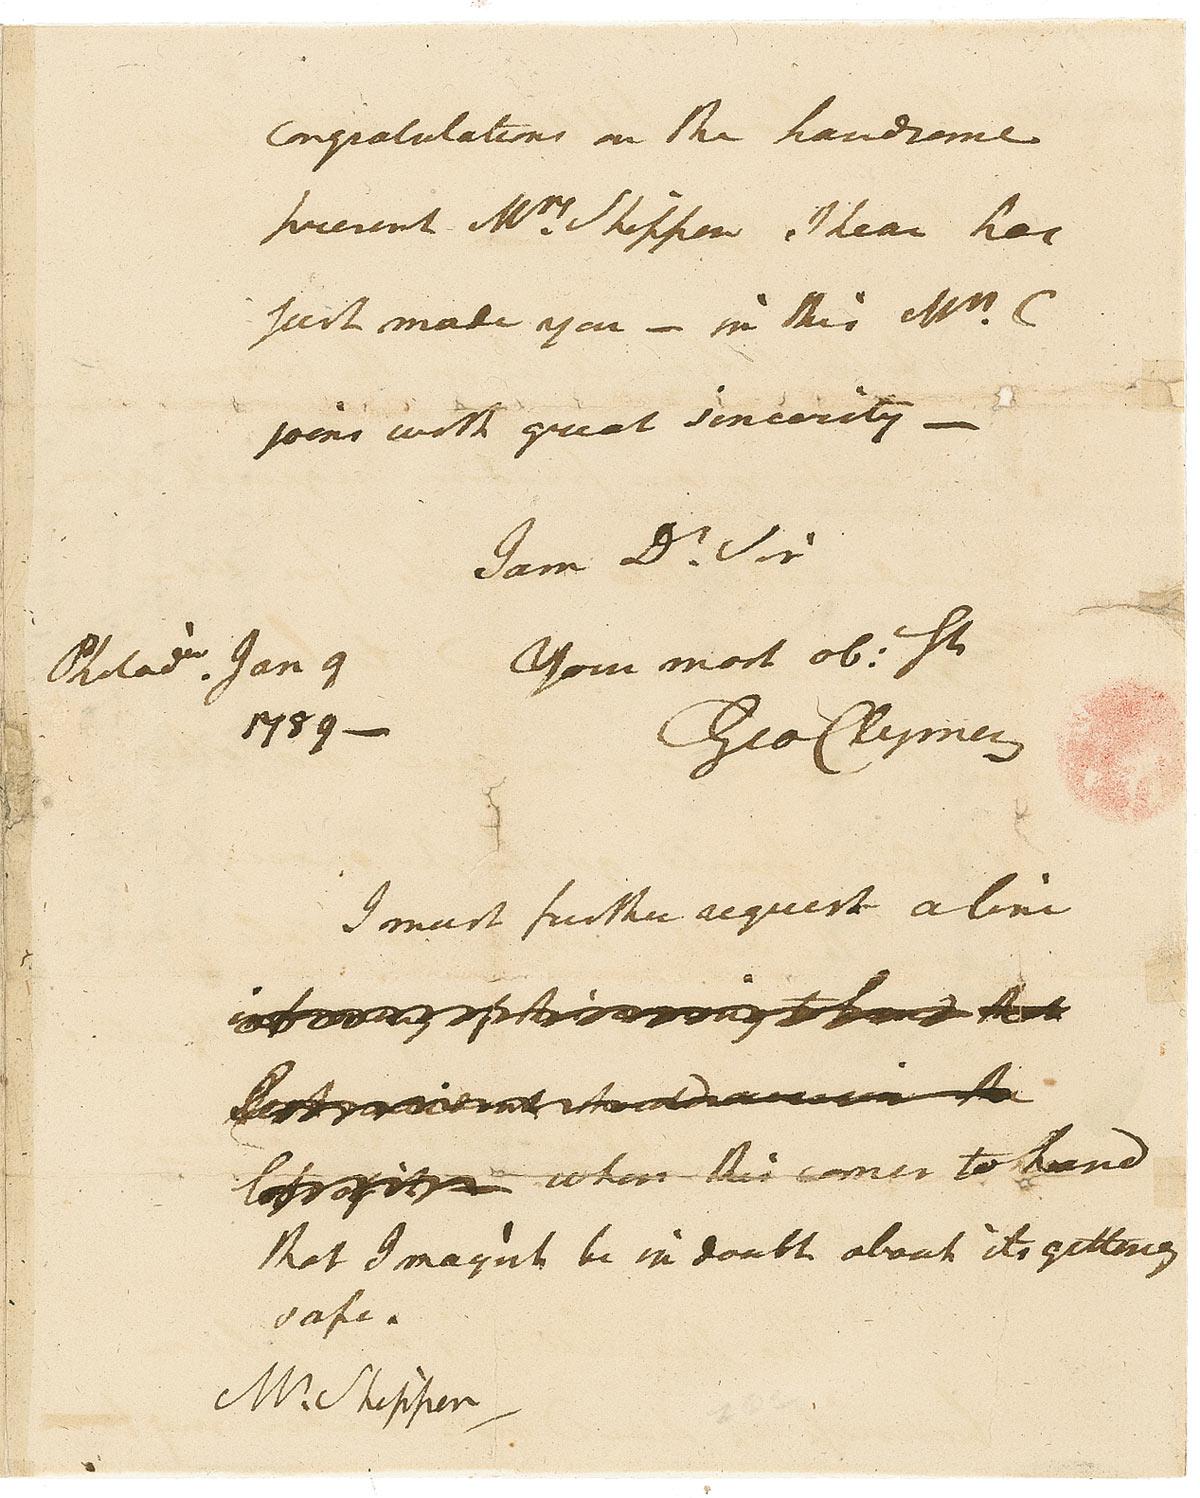 congratulations on the handsome
present Mrs. Shippen I hear has
just made you — in this Mrs. C
joins with great sincerity —
I am Dr. Sir
Philada. Jan 9
1789 —
Your most ob: St
Geo Clymer
I must further request a line
when this comes to hand
that I mayn't be in doubt about its getting
safe.
Mr. Shippen